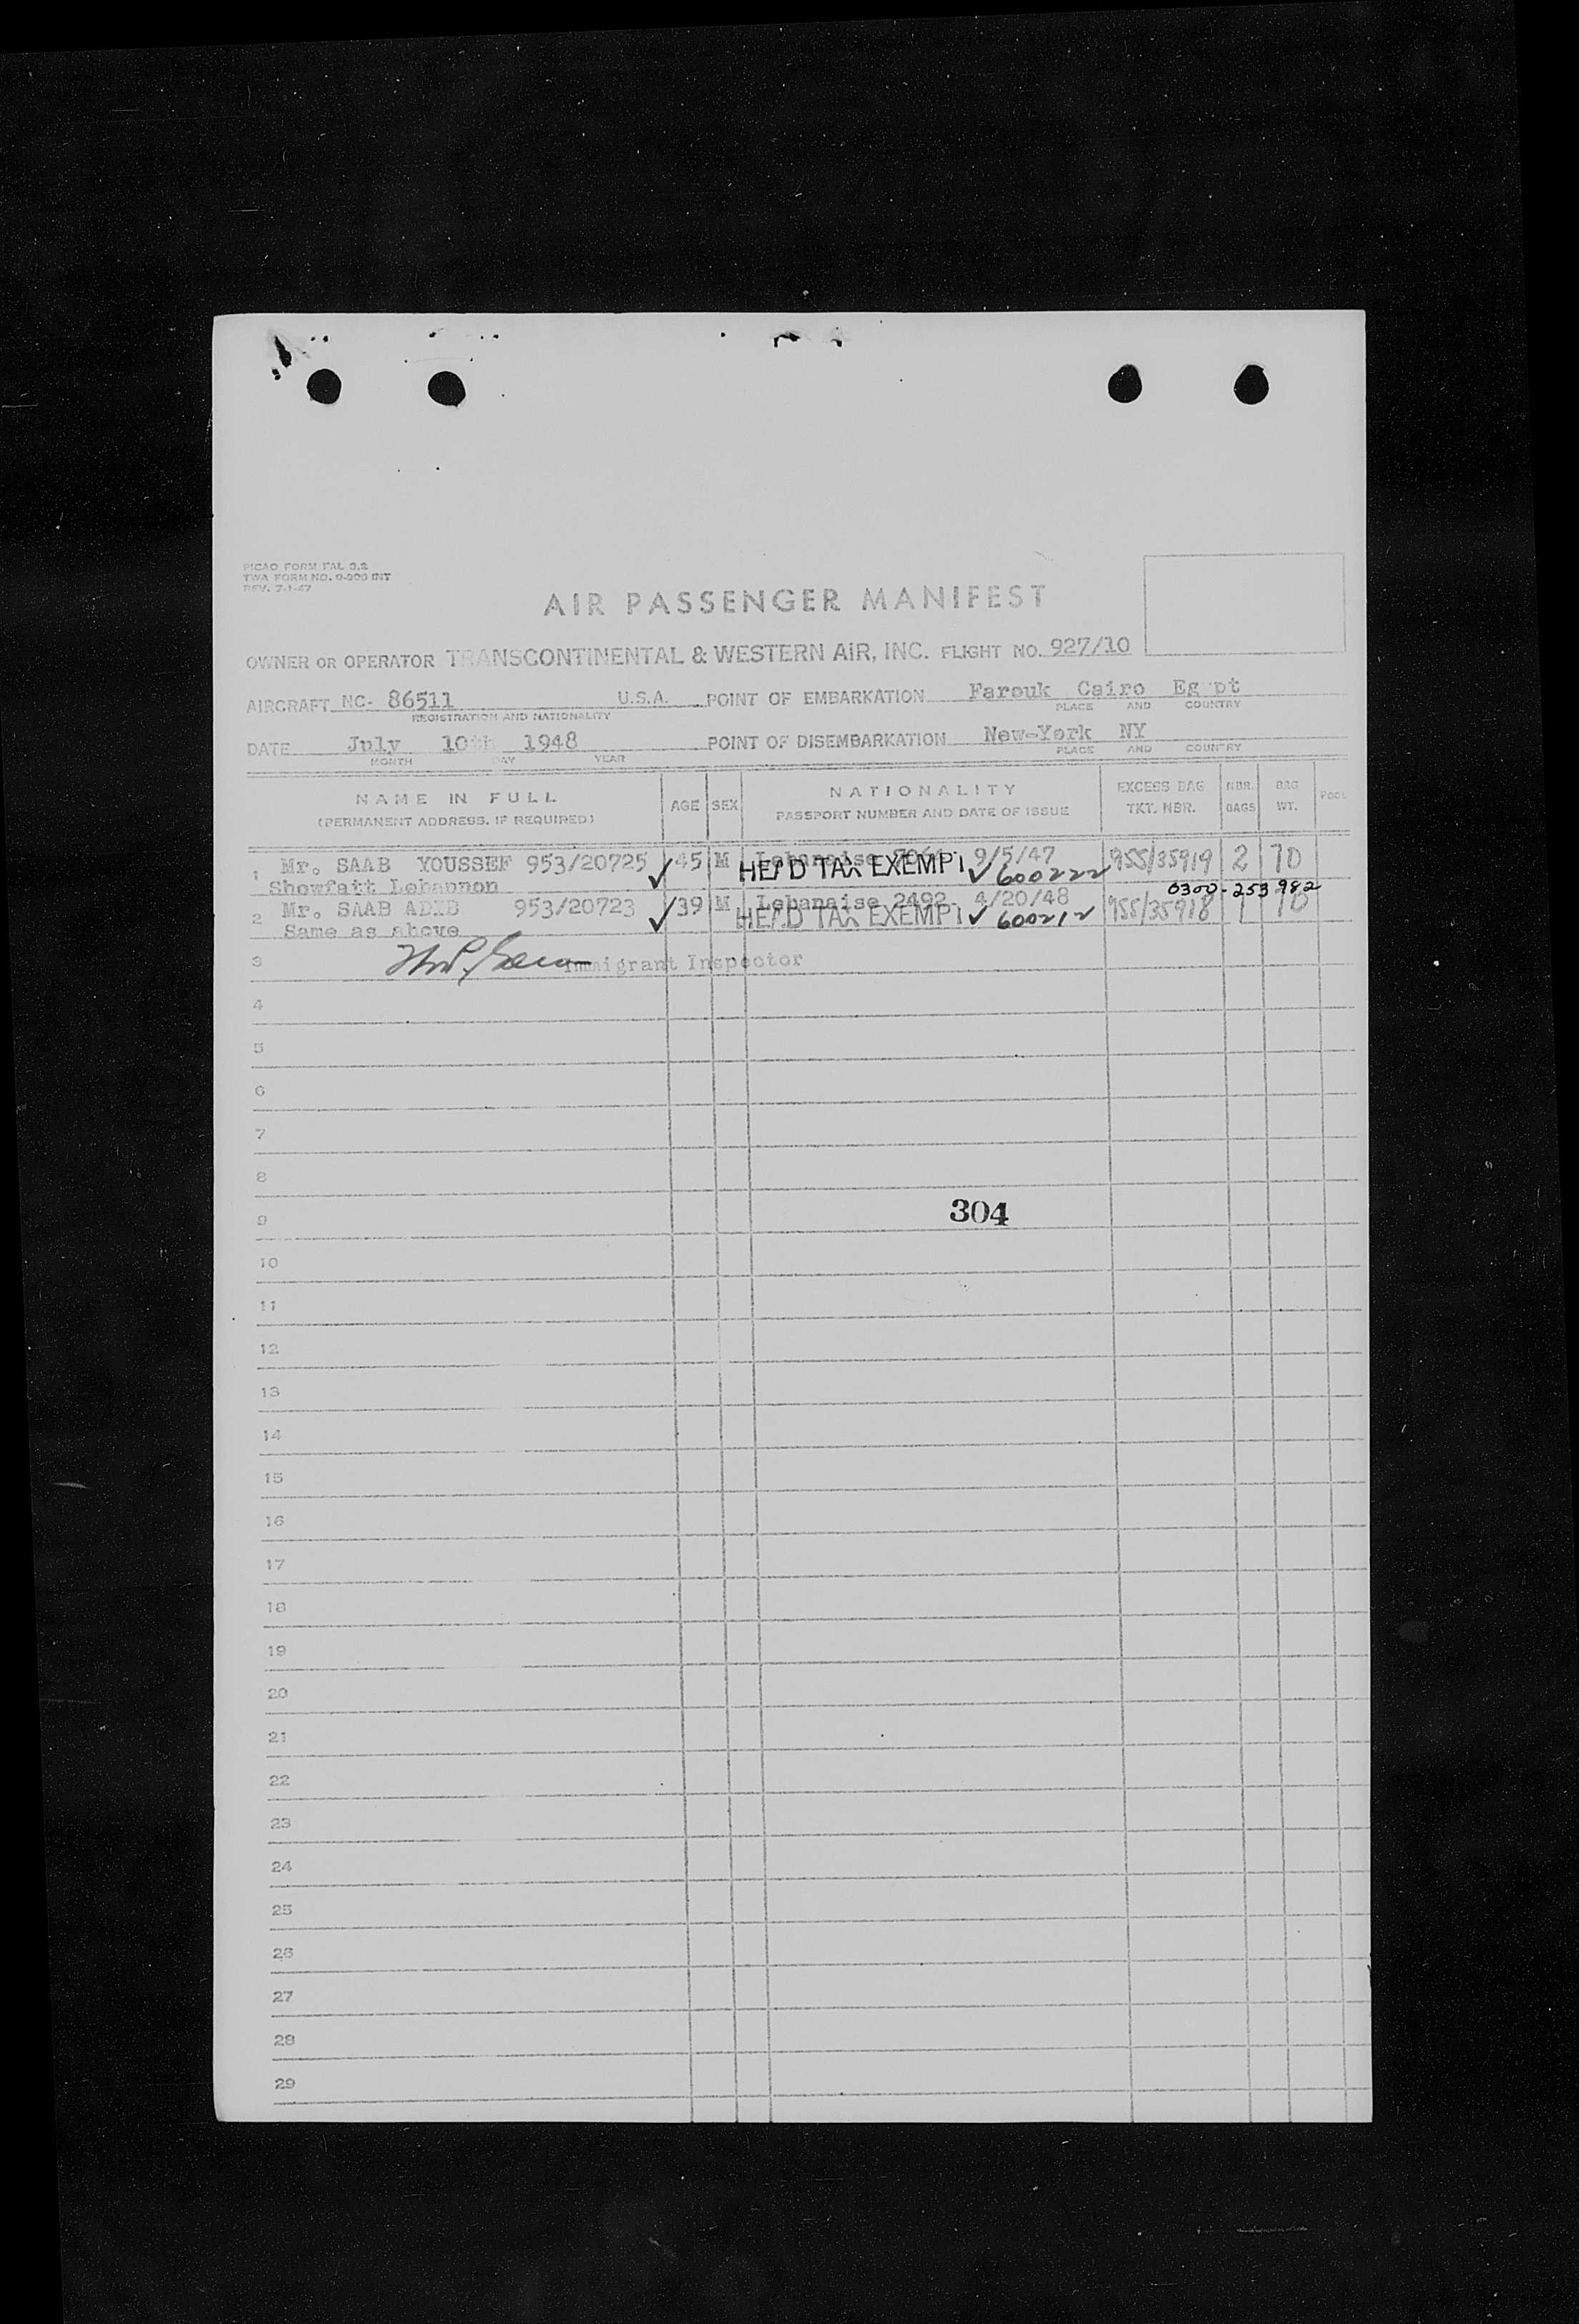 PICAO FORM FAL 3.2
TWA FORM NO. 0-900 INT
REV. 7-1-47
AIR PASSENGER MANIFEST
OWNER OR OPERATOR TRANSCONTINENTAL & WESTERN AIR, INC. FLIGHT NO. 927/10
AIRCRAFT NC- 86511 U.S.A. POINT OF EMBARKATION Farouk Cairo Egypt
REGISTRATION AND NATIONALITY PLACE AND COUNTRY
DATE July 10th 1948 POINT OF DISEMBARKATION New-York NY
MONTH DAY YEAR PLACE AND COUNTRY
NAME IN FULL
(PERMANENT ADDRESS, IF REQUIRED)
AGE
SEX
NATIONALITY
PASSPORT NUMBER AND DATE OF ISSUE
EXCESS BAG
TKT. NBR.
NBR.
BAGS
BAG
WT.
POOL
1 Mr. SAAB YOUSSEF 953/20725 45 M Lebanaise 9/5/47 955/35919 2 70
HEAD TAX EXEMPT 600222
Showfatt Lebannon
0300-253982
2 Mr. SAAB ADIB 953/20723 39 M Lebanaise 2492 4/20/48 955/35918 1 70
HEAD TAX EXEMPT 600212
Same as above
3 Immigrant Inspector
4
5
6
7
8
304
9
10
11
12
13
14
15
16
17
18
19
20
21
22
23
24
25
26
27
28
29